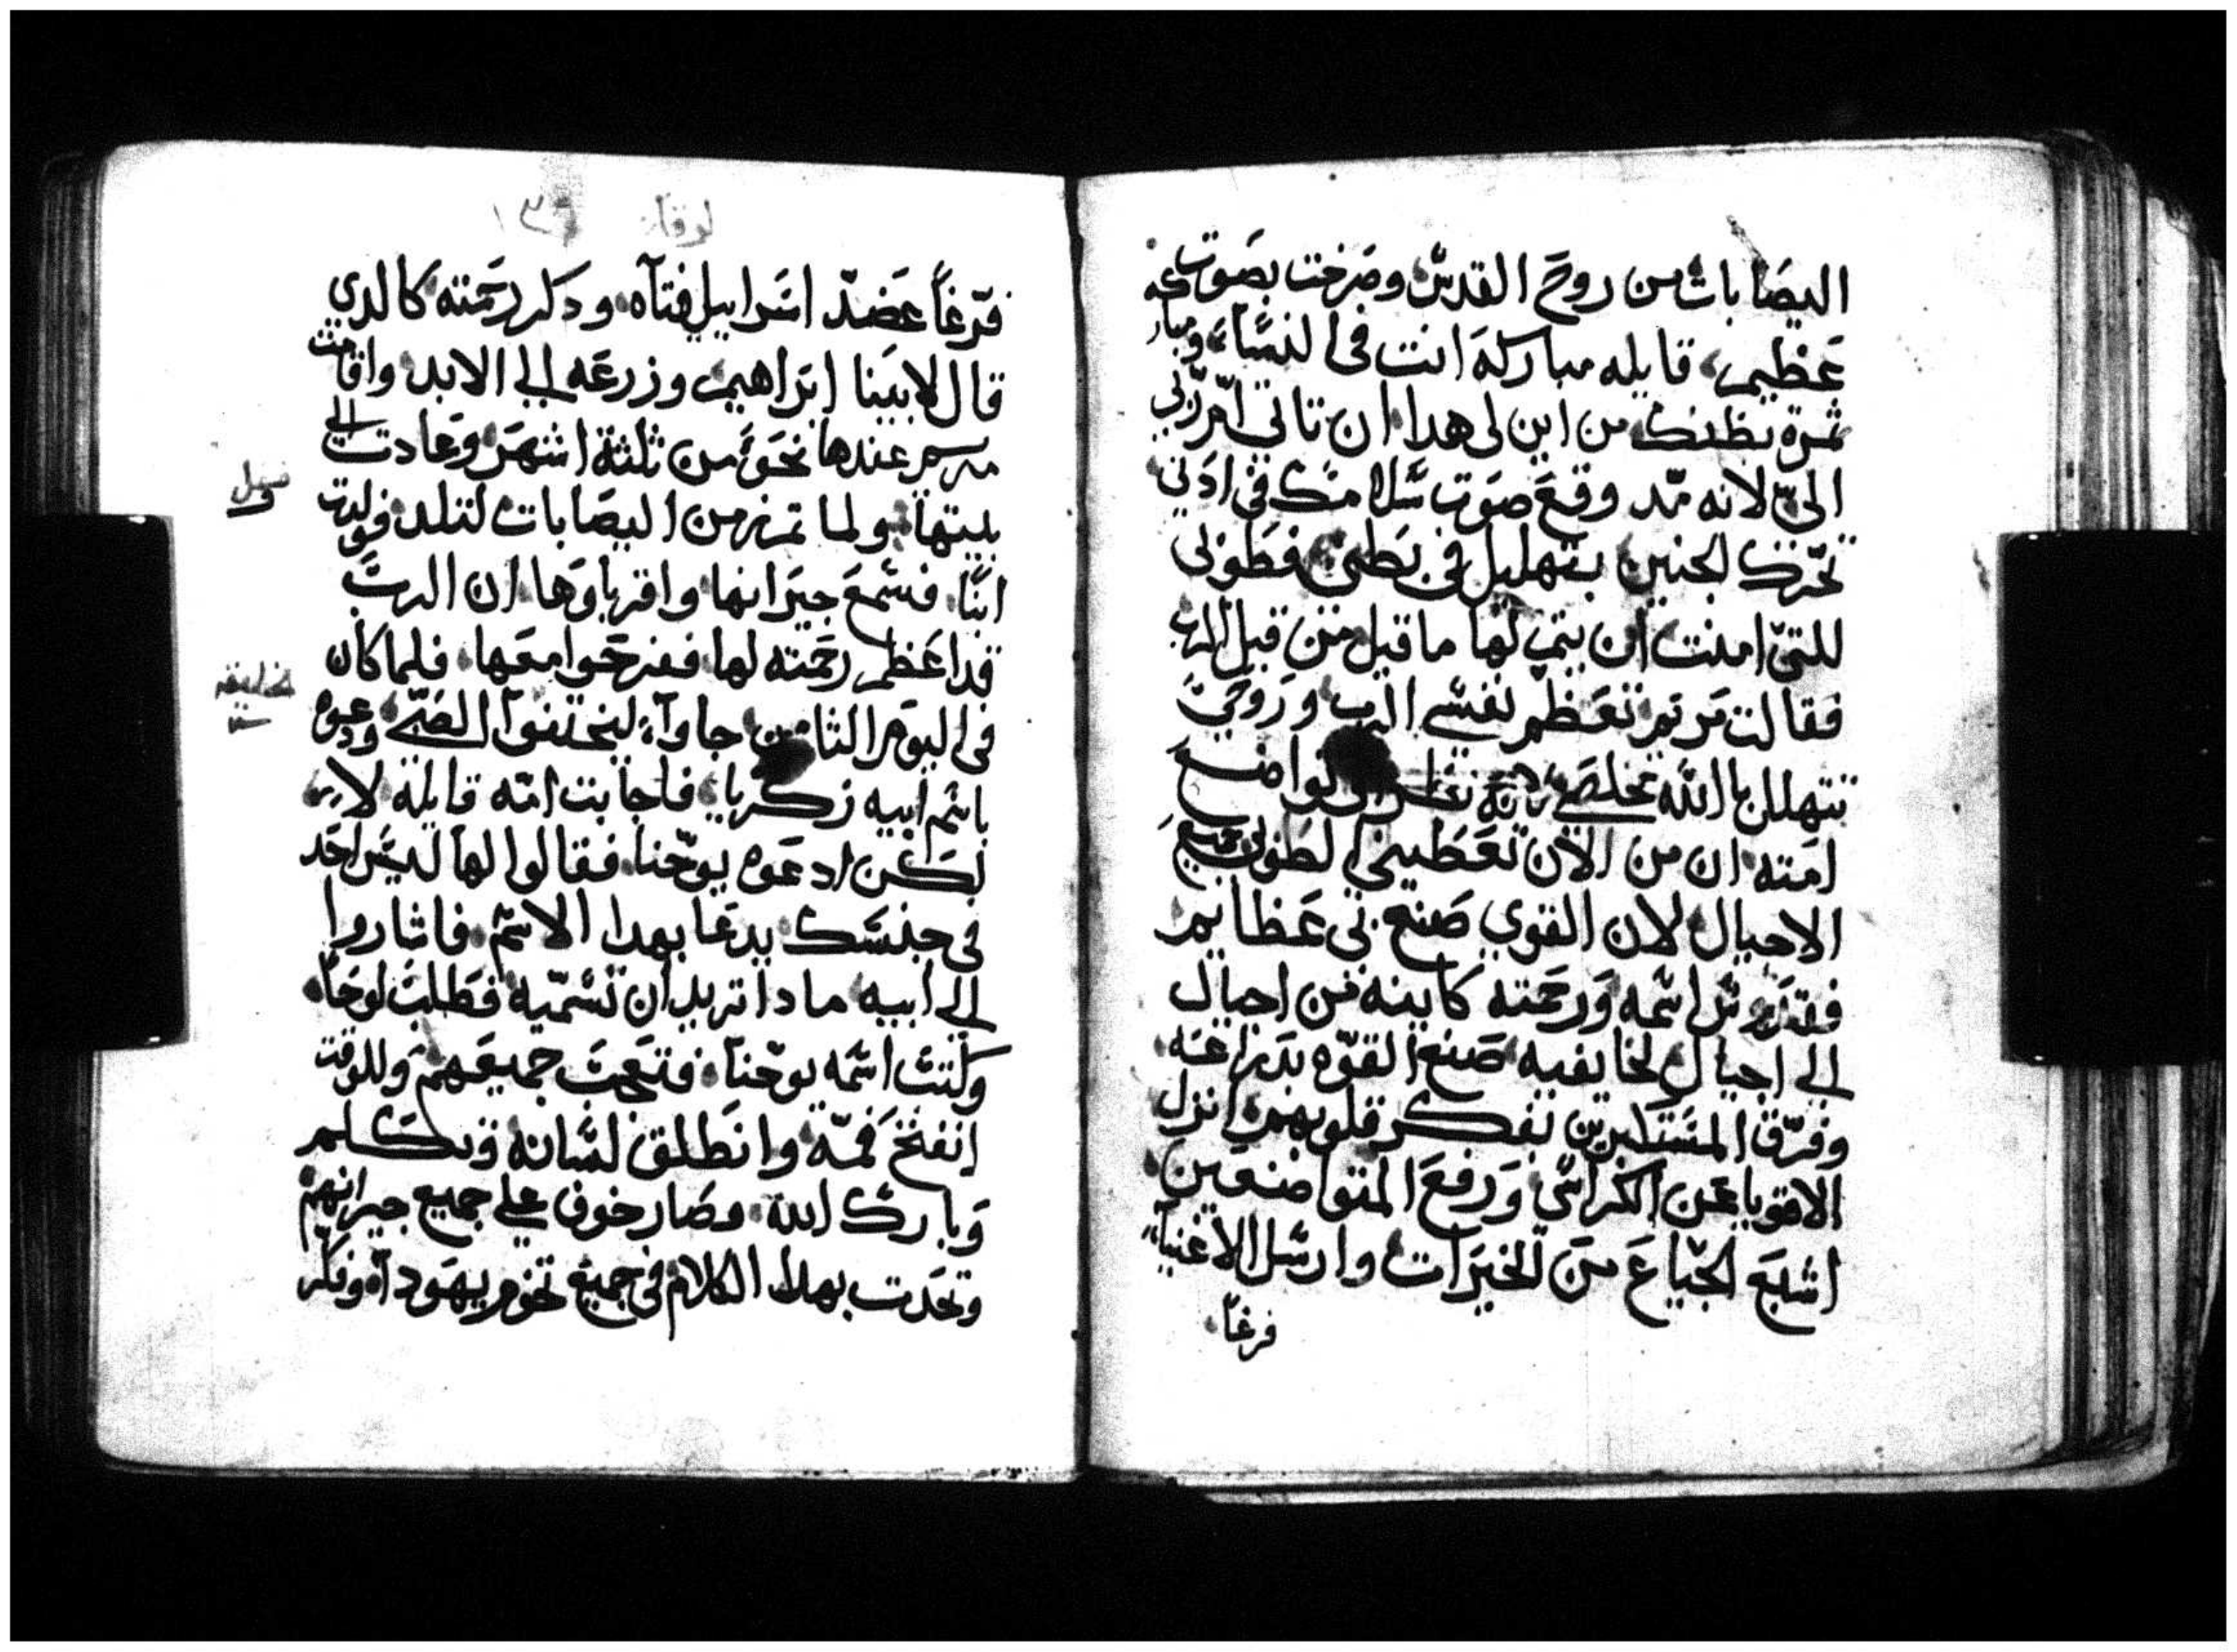 اليصابات من روح القدس وصرخت بصوت
عظيم، قايله مباركة انت في النساء، ومباركه
ثمرة بطنك من اين لي هدا ان تاتي ام ربي
الي لانه مد وقع صوت سلامك في ادني
تحرك الجنين بتهليل في بطني فطوبى
للتي امنت ان يتم لها ما قيل من قبل الرب
فقالت مريم تعظم نفسي الرب وروحي
تتهلل بالله مخلصي لانه نظر الى تواضع
امته ان من الان تعطيني الطوبى جميع
الاجيال لان القوي صنع بي عظايم
فقدوس اسمه ورحمته كاينه من اجيال
الى اجيال لخايفيه صنع القوه بدراعه
وفرق المستكبرين بفكر قلوبهم انزل
الاقويا عن الكراسي ورفع المتواضعين
اشبع الجياع من الخيرات وارسل الاغنيا
فرغا
لوقا ١٣٩
فرغا عضد اسراييل فتاه ودكر رحمته كالدي
قال لابينا ابراهيم وزرعه الى الابد واقامت
مريم عندها نحو من ثلثة اشهر وعادت الى
بيتها ولما تم زمن اليصابات لتلد فولدت
ابنا فسمع جيرانها واقرباوها ان الرب
قد اعظم رحمته لها ففرحوا معها فلما كان
في اليوم الثامن جاوا ليختنوا الصبي ودعوه
باسم ابيه زكريا فاجابت امه قايلة لا
لكن ادعوه يوحنا فقالوا لها ليس احد
في جنسك يدعا بهدا الاسم فاشاروا
الى ابيه مادا تريد ان نسميه فطلب لوحا
وكتب اسمه يوحنا فتعجب جميعهم وللوقت
انفتح فمه وانطلق لسانه وتكلم
وبارك الله وصار خوف على جميع جيرانهم
وتحدت بهدا الكلام في جميع تخوم يهودا وفكر
فصل